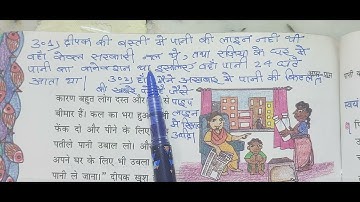 उ०1) दीपक की बस्ती में पानी की लाइन नहीं थी
वहाँ केवल सरकारी नल थे, तथा राधिका के घर में
पानी का कनेक्शन था इसलिए वहाँ पानी 24 घंटे
आता था। उ०2) हाँ मैंने अखबार में पानी की
की खबरें जैसे
कारण बहुत लोग दस्त और
बीमार हैं। कल का भरा हुआ
फेंक दो और पीने के लिए
पतीले पानी उबाल लो। और
अपने घर के लिए भी उबला
पानी ले जाना।” दीपक खुश
पाइप
लाइन
में